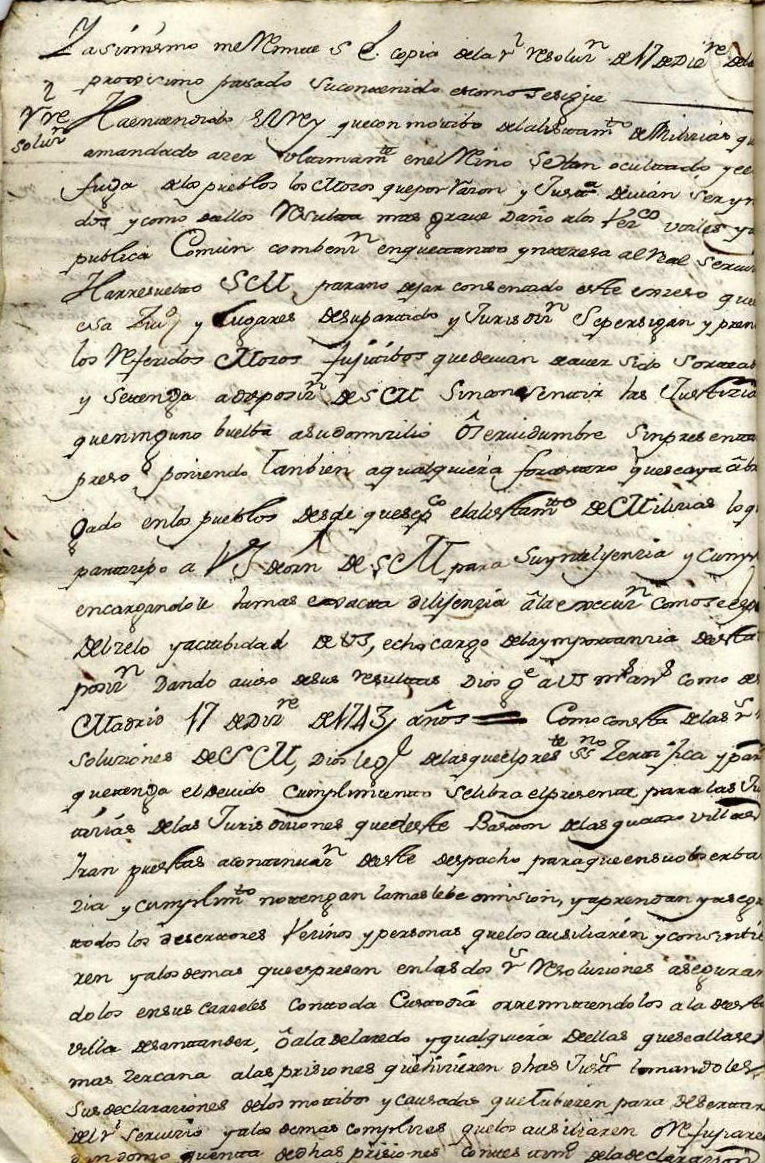 Y asimismo me Remite S E. copia de la Rl resoluzn de 17 de Dizre de
proxsimo pasado su contenido es como se sigue
Rl re
soluzn
Ha entendido El Rey que con mottibo del alistamto de Milizias q
a mandado azer ultimamte en el Reino Se han ocultado y
fuga de los pueblos los Mozos que por Razon y Justa devian ser yn
dos y como de ellos Resulta mas grave daño a los vezos utiles y
publica Comun combenn en que tanto ynteresa al Real Servi
Ha resuelto S M, para no dejar consentido este exzeso que
esa Ziud y Lugares de su partido y Jurisdizn se persigan y pren
los Referidos Mozos fujitibos que devian de aver sido sortea
y se tenga a disposizn de S M Sin consentir las Justizia
que ninguno buelba a su domizilio ô servidumbre sin presenta
preso poniendo tanbien a qualquiera forastero que se aya abri
gado en los pueblos desde que se pco el alistamto de Milizias lo q
partizipo a VS de orn de S M para su yntelijenzia y Cumpl
encargandole la mas exsacta dilijenzia a la execuzn como se esp
del zelo y actibidad de VS, echo cargo de la ymportanzia de esta
posizn Dando aviso de sus resultas Dios ge a VS ms as como de
Madrid 17 de Dizre de 1743 años = Como consta de las Rs
soluziones de S M, Dios le ge de las que el preste ssno Zertifica y par
que tenga el devido Cumplimiento se libra el presente para las Ju
tizias de las Jurisdiziones que de este Baston de las quatro villas
Iran puestas a continuazn de este despacho para que en su obserba
zia y cumplimto no tengan la mas lebe omision, y aprendan y asegu
todos los desertores Vezinos y personas que los ausiliaren y consintie
ren y a los demas que espresan en las dos Rs Resoluziones aseguran
dolos en sus carzeles Con toda Custodia o rremitiendolos a la de esta
villa de santander, ô a la de laredo y qualquiera de ellas que se allase
mas zercana a las prisiones que hizieren dhas Justs tomandoles
Sus declaraziones de los mottibos y causadas que tubieren para desertar
del Rl Servizio y a los demas complizes que los ausiliaren o Refujiare
dandome quenta de dhas prisiones con testimo de la declarazion